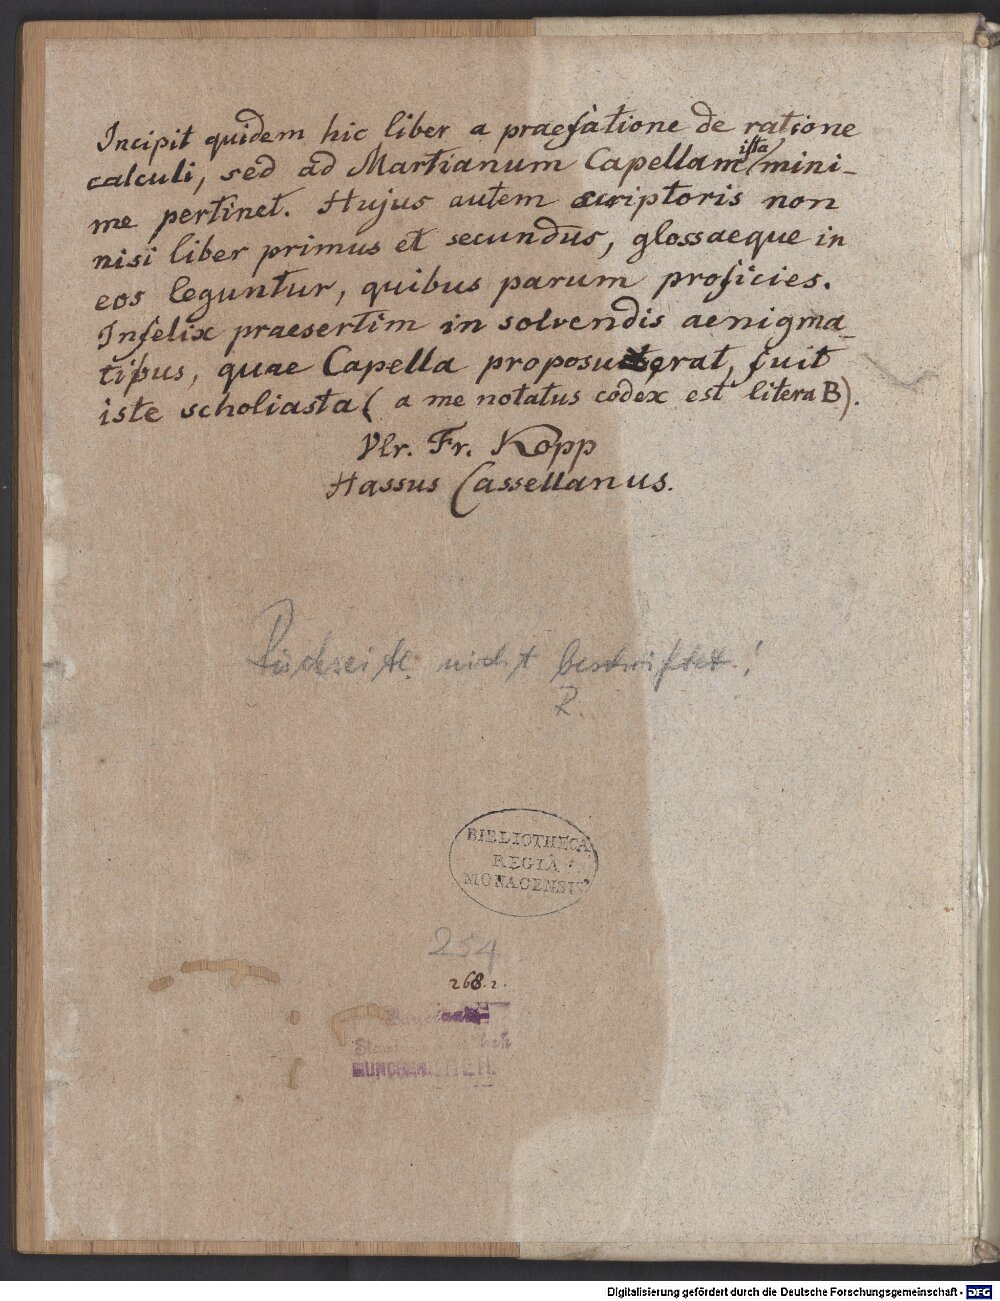 Incipit quidem hic liber a praefatione de ratione
calculi, sed ad Martianum Capellam ista mini-
me pertinet. Hujus autem scriptoris non
nisi liber primus et secundus, glossaeque in
eos leguntur, quibus parum proficies.
Infelix praesertim in solvendis aenigma-
tibus, quae Capella proposuerat, fuit
iste scholiasta (a me notatus codex est litera B).
Vlr. Fr. Kopp
Hassus Cassellanus.
Rückseite nicht beschriftet!
R.
BIBLIOTHECA
REGIA
MONACENSIS
254
268.2.
MÜNCHEN
Digitalisierung gefördert durch die Deutsche Forschungsgemeinschaft - DFG